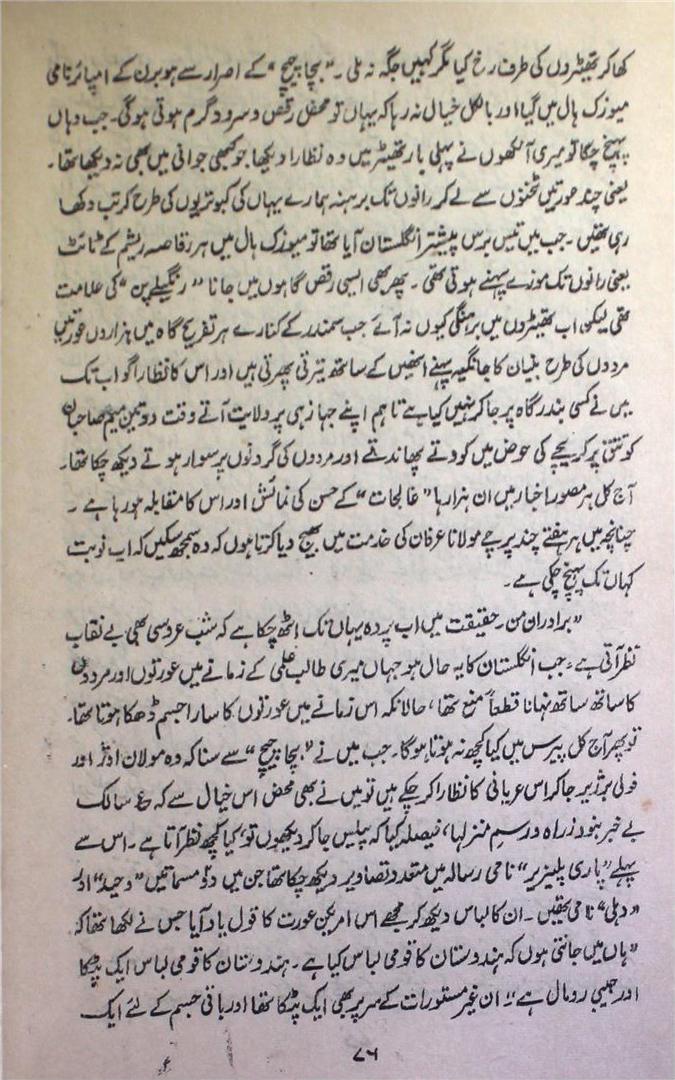 کھا کر تھیٹروں کی طرف رخ کیا مگر کہیں جگہ نہ ملی۔ "بچا پیچ" کے اصرار سے ہوبرن کے امپائر نامی
میوزک ہال میں گیا اور بالکل خیال نہ رہا کہ یہاں تو محفل رقص و سرود گرم ہوتی ہوگی۔ جب وہاں
پہنچ چکا تو میری آنکھوں نے پہلی بار تھیٹر میں وہ نظارا دیکھا جو کبھی جوانی میں بھی نہ دیکھا تھا۔
یعنی چند عورتیں ٹخنوں سے لے کر رانوں تک برہنہ ہمارے یہاں کی کبوتریوں کی طرح کرتب دکھا
رہی تھیں۔ جب میں تیس برس پیشتر انگلستان آیا تھا تو میوزک ہال میں ہر رقاصہ ریشم کے ٹائٹ
یعنی رانوں تک موزے پہنے ہوتی تھی۔ پھر بھی ایسی رقص گاہوں میں جانا "رنگیلے پن" کی علامت
تھی لیکن اب تھیٹروں میں برہنگی کیوں نہ آئے جب سمندر کے کنارے ہر تفریح گاہ میں ہزاروں عورتیں
مردوں کی طرح بنیان کا جانگیہ پہنے انھیں کے ساتھ تیرتی پھرتی ہیں اور اس کا نظارا گو اب تک
میں نے کسی بندرگاہ پر جا کر نہیں کیا ہے تاہم اپنے جہاز ہی پر ولایت آتے وقت دو تین میم صاحبان
کو تختا پر کرمچے کی حوض میں کودتے پھاندتے اور مردوں کی گردنوں پر سوار ہوتے دیکھ چکا تھا۔
آج کل ہر مصور اخبار میں ان ہزارہا "عالجات" کے حسن کی نمائش اور اس کا مقابلہ ہو رہا ہے۔
چنانچہ میں ہر ہفتے چند پرچے مولانا عرفان کی خدمت میں بھیج دیا کرتا ہوں کہ وہ سمجھ سکیں کہ اب نوبت
کہاں تک پہنچ چکی ہے۔
"برادران من۔ حقیقت میں اب پردہ یہاں تک اٹھ چکا ہے کہ شب عروسی بھی بے نقاب
نظر آتی ہے۔ جب انگلستان کا یہ حال ہو جہاں میری طالب علمی کے زمانے میں عورتوں اور مردوں
کا ساتھ ساتھ نہانا قطعاً منع تھا، حالانکہ اس زمانے میں عورتوں کا سارا جسم ڈھکا ہوتا تھا۔
تو پھر آج کل پیرس میں کیا کچھ نہ ہوتا ہوگا۔ جب میں نے "بچا پیچ" سے سنا کہ وہ مولان اوژ اور
فولی برژیر جا کر اس عریانی کا نظارا کر چکے ہیں تو میں نے بھی محض اس خیال سے کہ ع سالک
بے خبر نبود ز راہ و رسم منزلہا، فیصلہ کیا کہ پیلیس جا کر دیکھوں تو، کیا کچھ نظر آتا ہے۔ اس سے
پہلے "پاری پلیزیر" نامی رسالہ میں متعدد تصاویر دیکھ چکا تھا جن میں دو مسماتیں "وحید" اور
"دہلی" نامی تھیں۔ ان کا لباس دیکھ کر مجھے اس امریکن عورت کا قول یاد آیا جس نے لکھا تھا کہ
"ہاں میں جانتی ہوں کہ ہندوستان کا قومی لباس کیا ہے۔ ہندوستان کا قومی لباس ایک پٹکا
اور جیبی رومال ہے"۔ ان غیر مستورات کے سر پر بھی ایک پٹکا تھا اور باقی جسم کے لئے ایک
۷۶